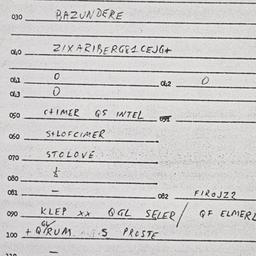 030 BAZUNDERE
040 ZIXARIBERGE1CEJG+
041 0 042 0
043 0
050 C+IMER QS INTEL 051
060 S+LOFCIMER
070 STOLOVE
080
081 - 082 FIROJZ2
090 KLEP XX QGL SELER / QF ELMERL
100 + QIRUM S PROSTE
110